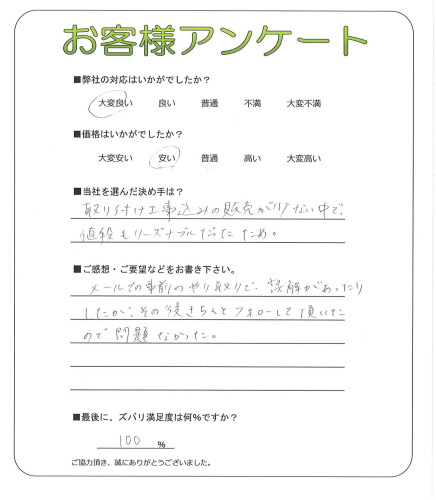 お客様アンケート
■弊社の対応はいかがでしたか？
大変良い 良い 普通 不満 大変不満
■価格はいかがでしたか？
大変安い 安い 普通 高い 大変高い
■当社を選んだ決め手は？
取り付け工事込みの販売が少ない中で、
値段もリーズナブルだったため。
■ご感想・ご要望などをお書き下さい。
メールでの事前のやり取りで、誤解があったり
したが、その後きちんとフォローして頂いた
ので問題なかった。
■最後に、ズバリ満足度は何％ですか？
100 %
ご協力頂き、誠にありがとうございました。